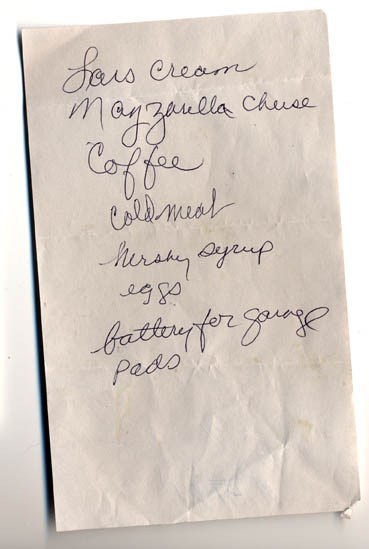 Lais cream
Mayzarella cheese
Coffee
cold meat
hershy syrup
eggs
battery for garage
pads